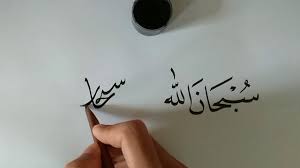 سُبْحَانَ اللّٰه سبحا